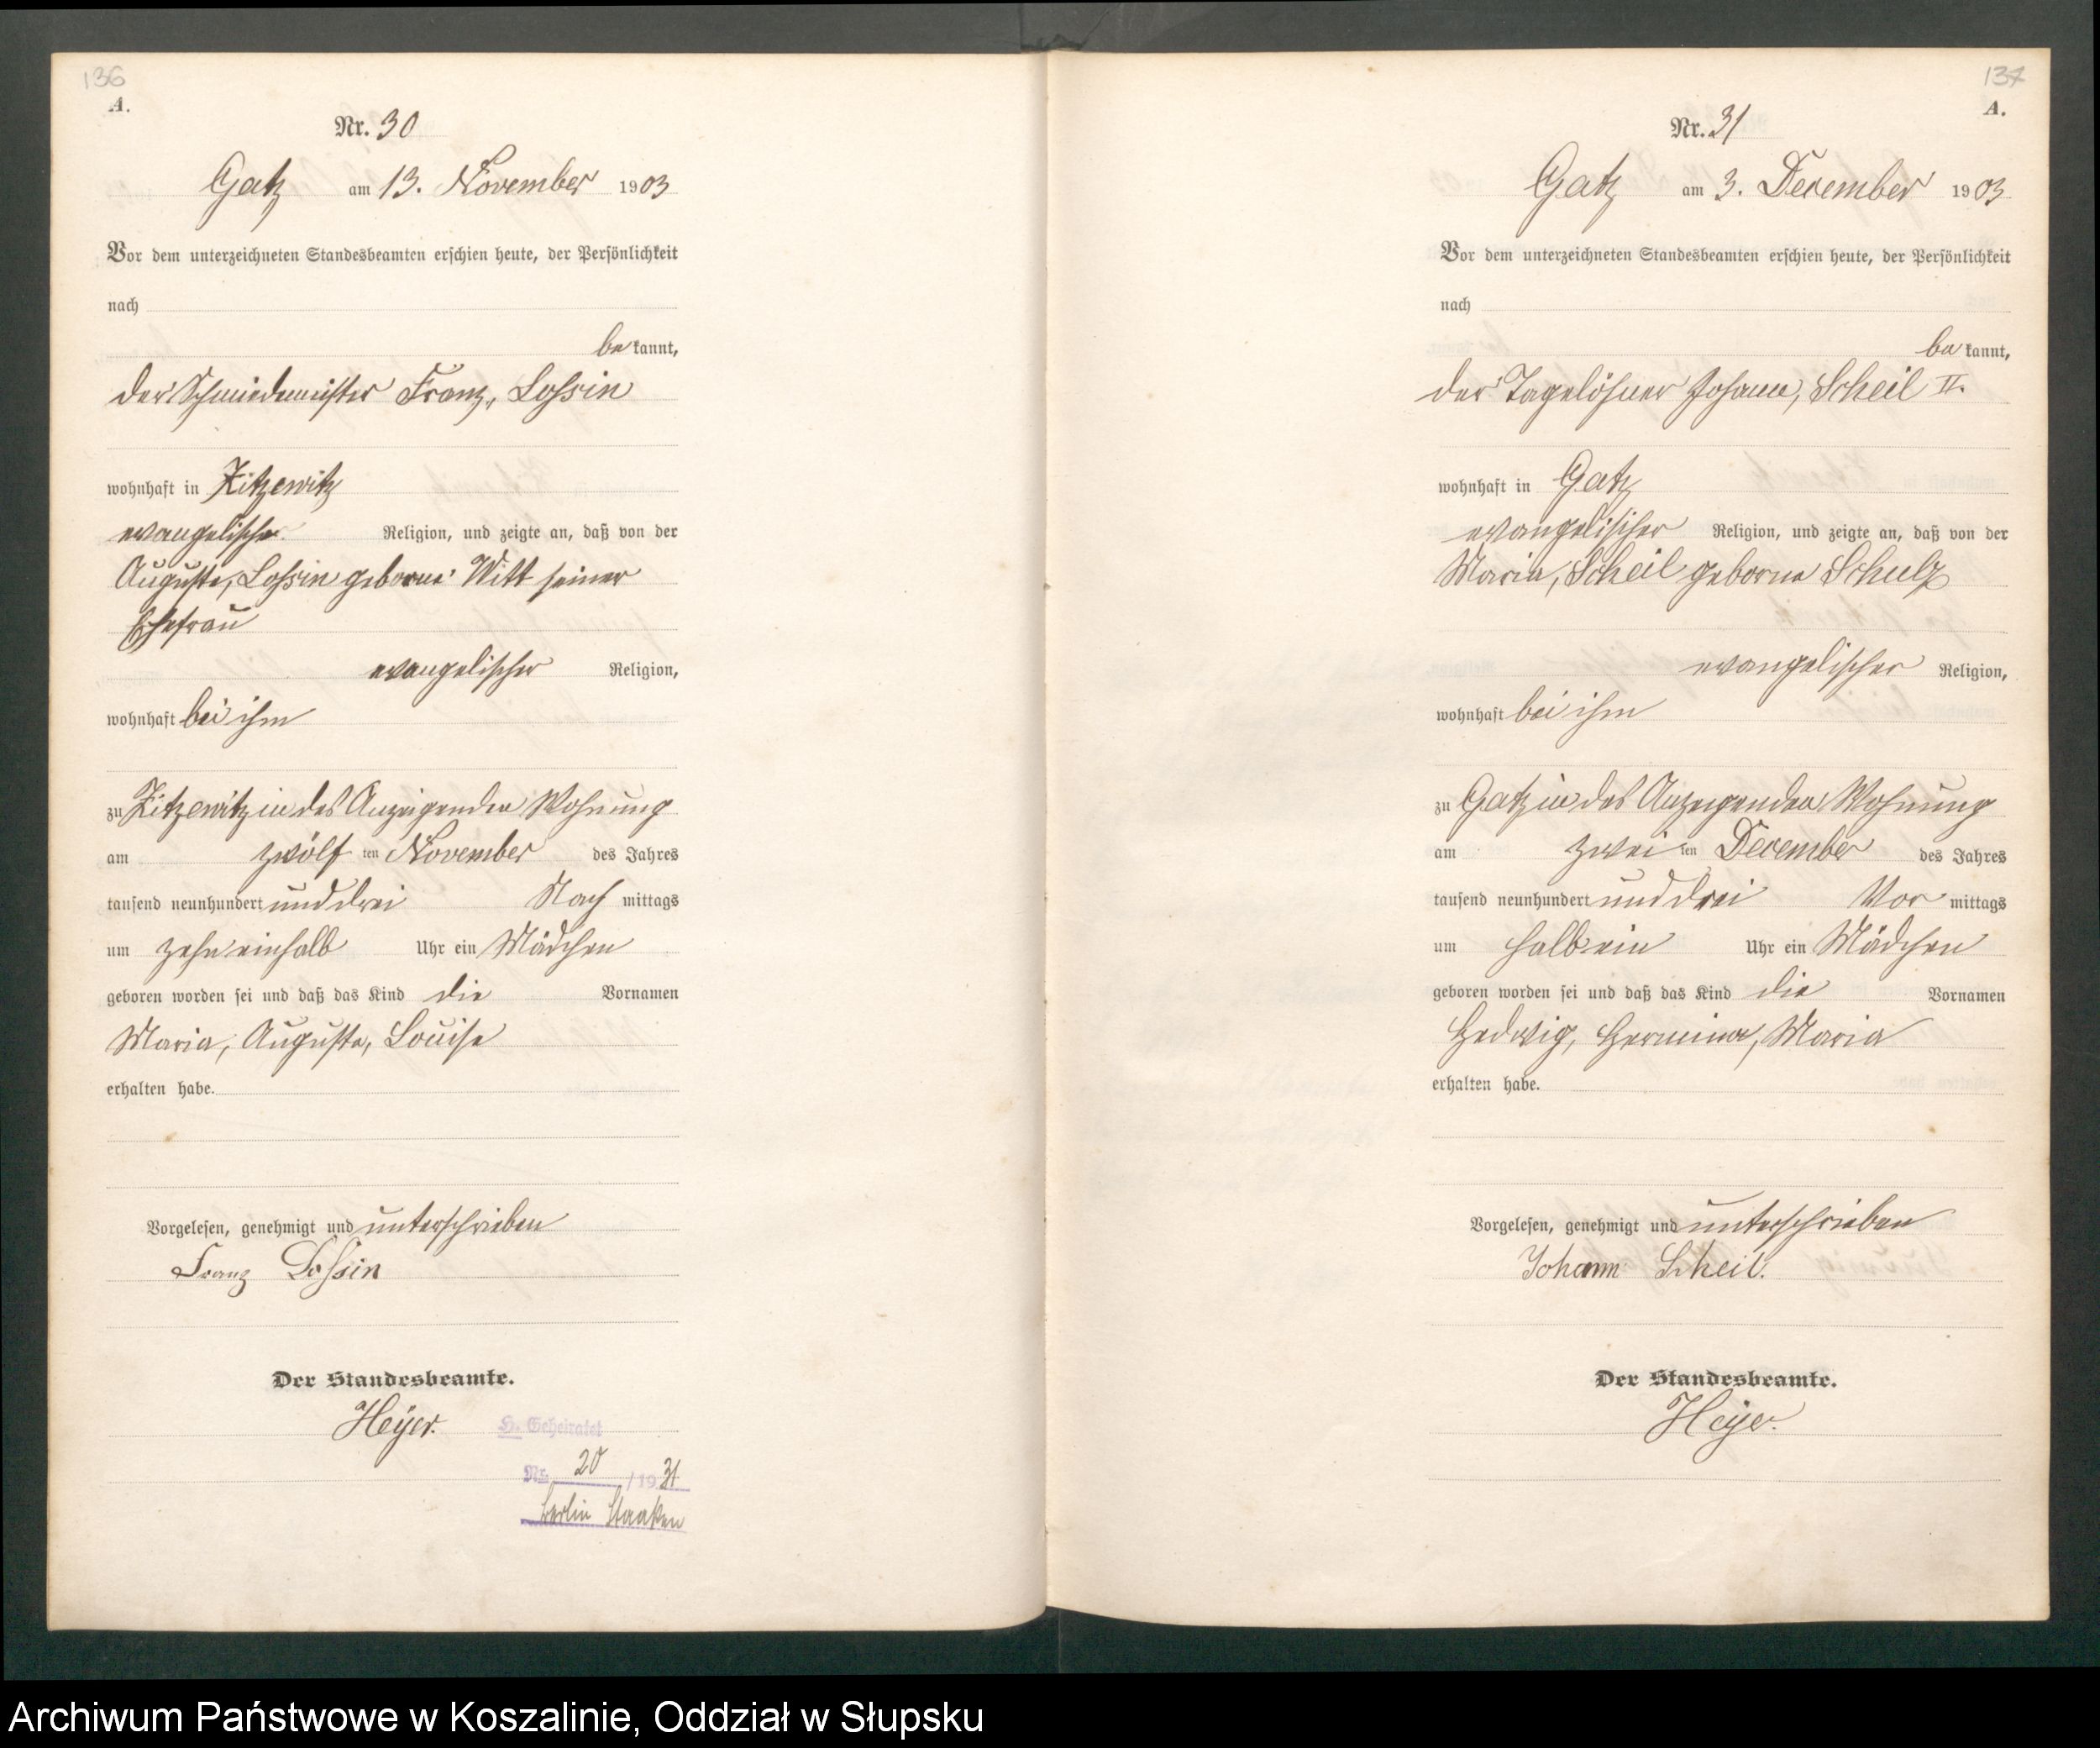 136
A.
Nr. 30
Gatz am 13. November 1903
Vor dem unterzeichneten Standesbeamten erschien heute, der Persönlichkeit
nach
be kannt,
der Schmiedemeister Franz, Lossin
wohnhaft in Zitzewitz
evangelischer Religion, und zeigte an, daß von der
Auguste, Lossin geborne Witt seiner
Ehefrau
evangelischer Religion,
wohnhaft bei ihm
zu Zitzewitz in des Anzeigenden Wohnung
am zwölf ten November des Jahres
tausend neunhundert und drei Nach mittags
um zehn einhalb Uhr ein Mädchen
geboren worden sei und daß das Kind die Vornamen
Maria, Auguste, Louise
erhalten habe.
Vorgelesen, genehmigt und unterschrieben
Franz Lossin
Der Standesbeamte.
Heyer.
H. Geheiratet
Nr. 20 /1931
Berlin Staaken
137
A.
Nr. 31
Gatz am 3. December 1903
Vor dem unterzeichneten Standesbeamten erschien heute, der Persönlichkeit
nach
be kannt,
der Tagelöhner Johann, Scheil II.
wohnhaft in Gatz
evangelischer Religion, und zeigte an, daß von der
Maria, Scheil geborne Schulz
evangelischer Religion,
wohnhaft bei ihm
zu Gatz in des Anzeigenden Wohnung
am zwei ten December des Jahres
tausend neunhundert und drei Vor mittags
um halb ein Uhr ein Mädchen
geboren worden sei und daß das Kind die Vornamen
Hedwig, Hermine, Maria
erhalten habe.
Vorgelesen, genehmigt und unterschrieben
Johann Scheil.
Der Standesbeamte.
Heyer.
Archiwum Państwowe w Koszalinie, Oddział w Słupsku